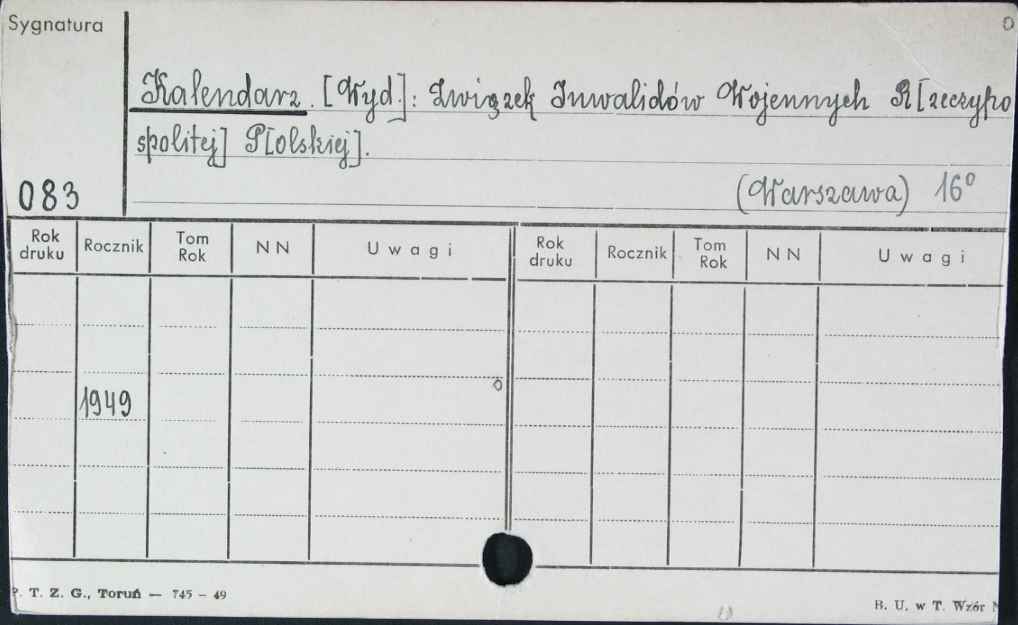 Sygnatura
Kalendarz. [Wyd.]: Związek Inwalidów Wojennych R[zeczypo
spolitej] P[olskiej].
083
(Warszawa) 16°
Rok druku Rocznik Tom Rok NN Uwagi Rok druku Rocznik Tom Rok NN Uwagi
1949
P. T. Z. G., Toruń — 745 - 49
B. U. w T. Wzór